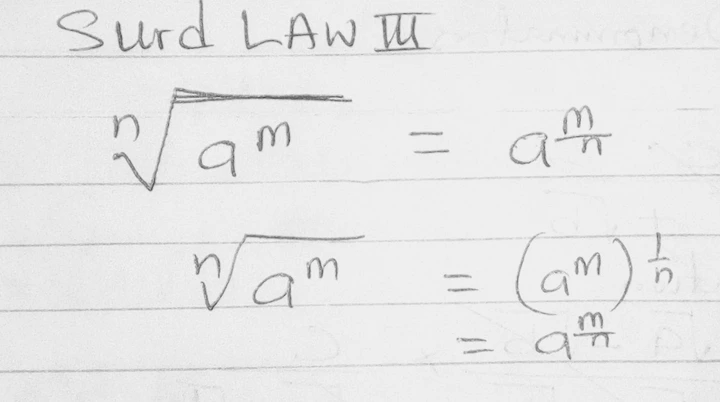 Surd LAW III
ⁿ√aᵐ = a^(m/n)
ⁿ√aᵐ = (aᵐ)^(1/n)
= a^(m/n)